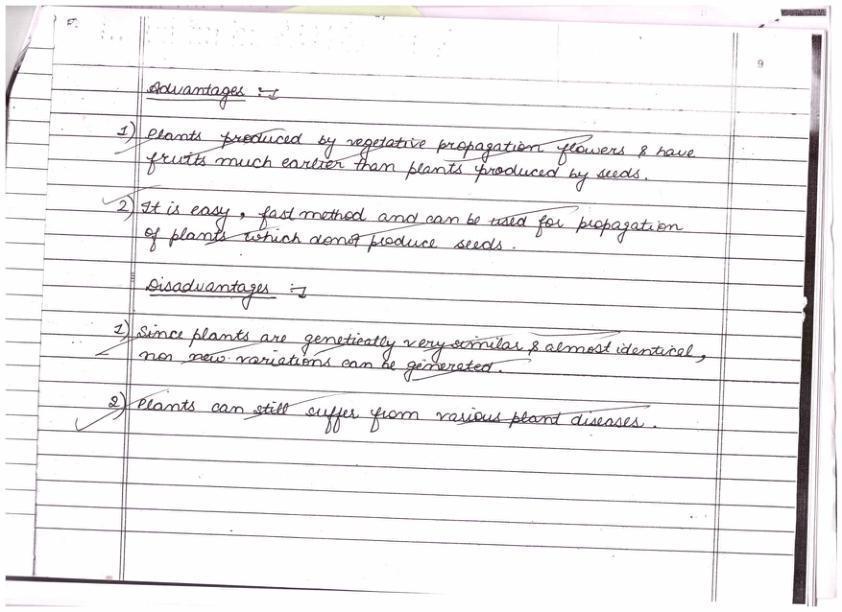 9
Advantages :-
1) Plants produced by vegetative propagation flowers & have
fruits much earlier than plants produced by seeds.
2) It is easy, fast method and can be used for propagation
of plants which donot produce seeds.
Disadvantages :-
1) Since plants are genetically very similar & almost identical,
nor new variations can be generated.
2) Plants can still suffer from various plant diseases.